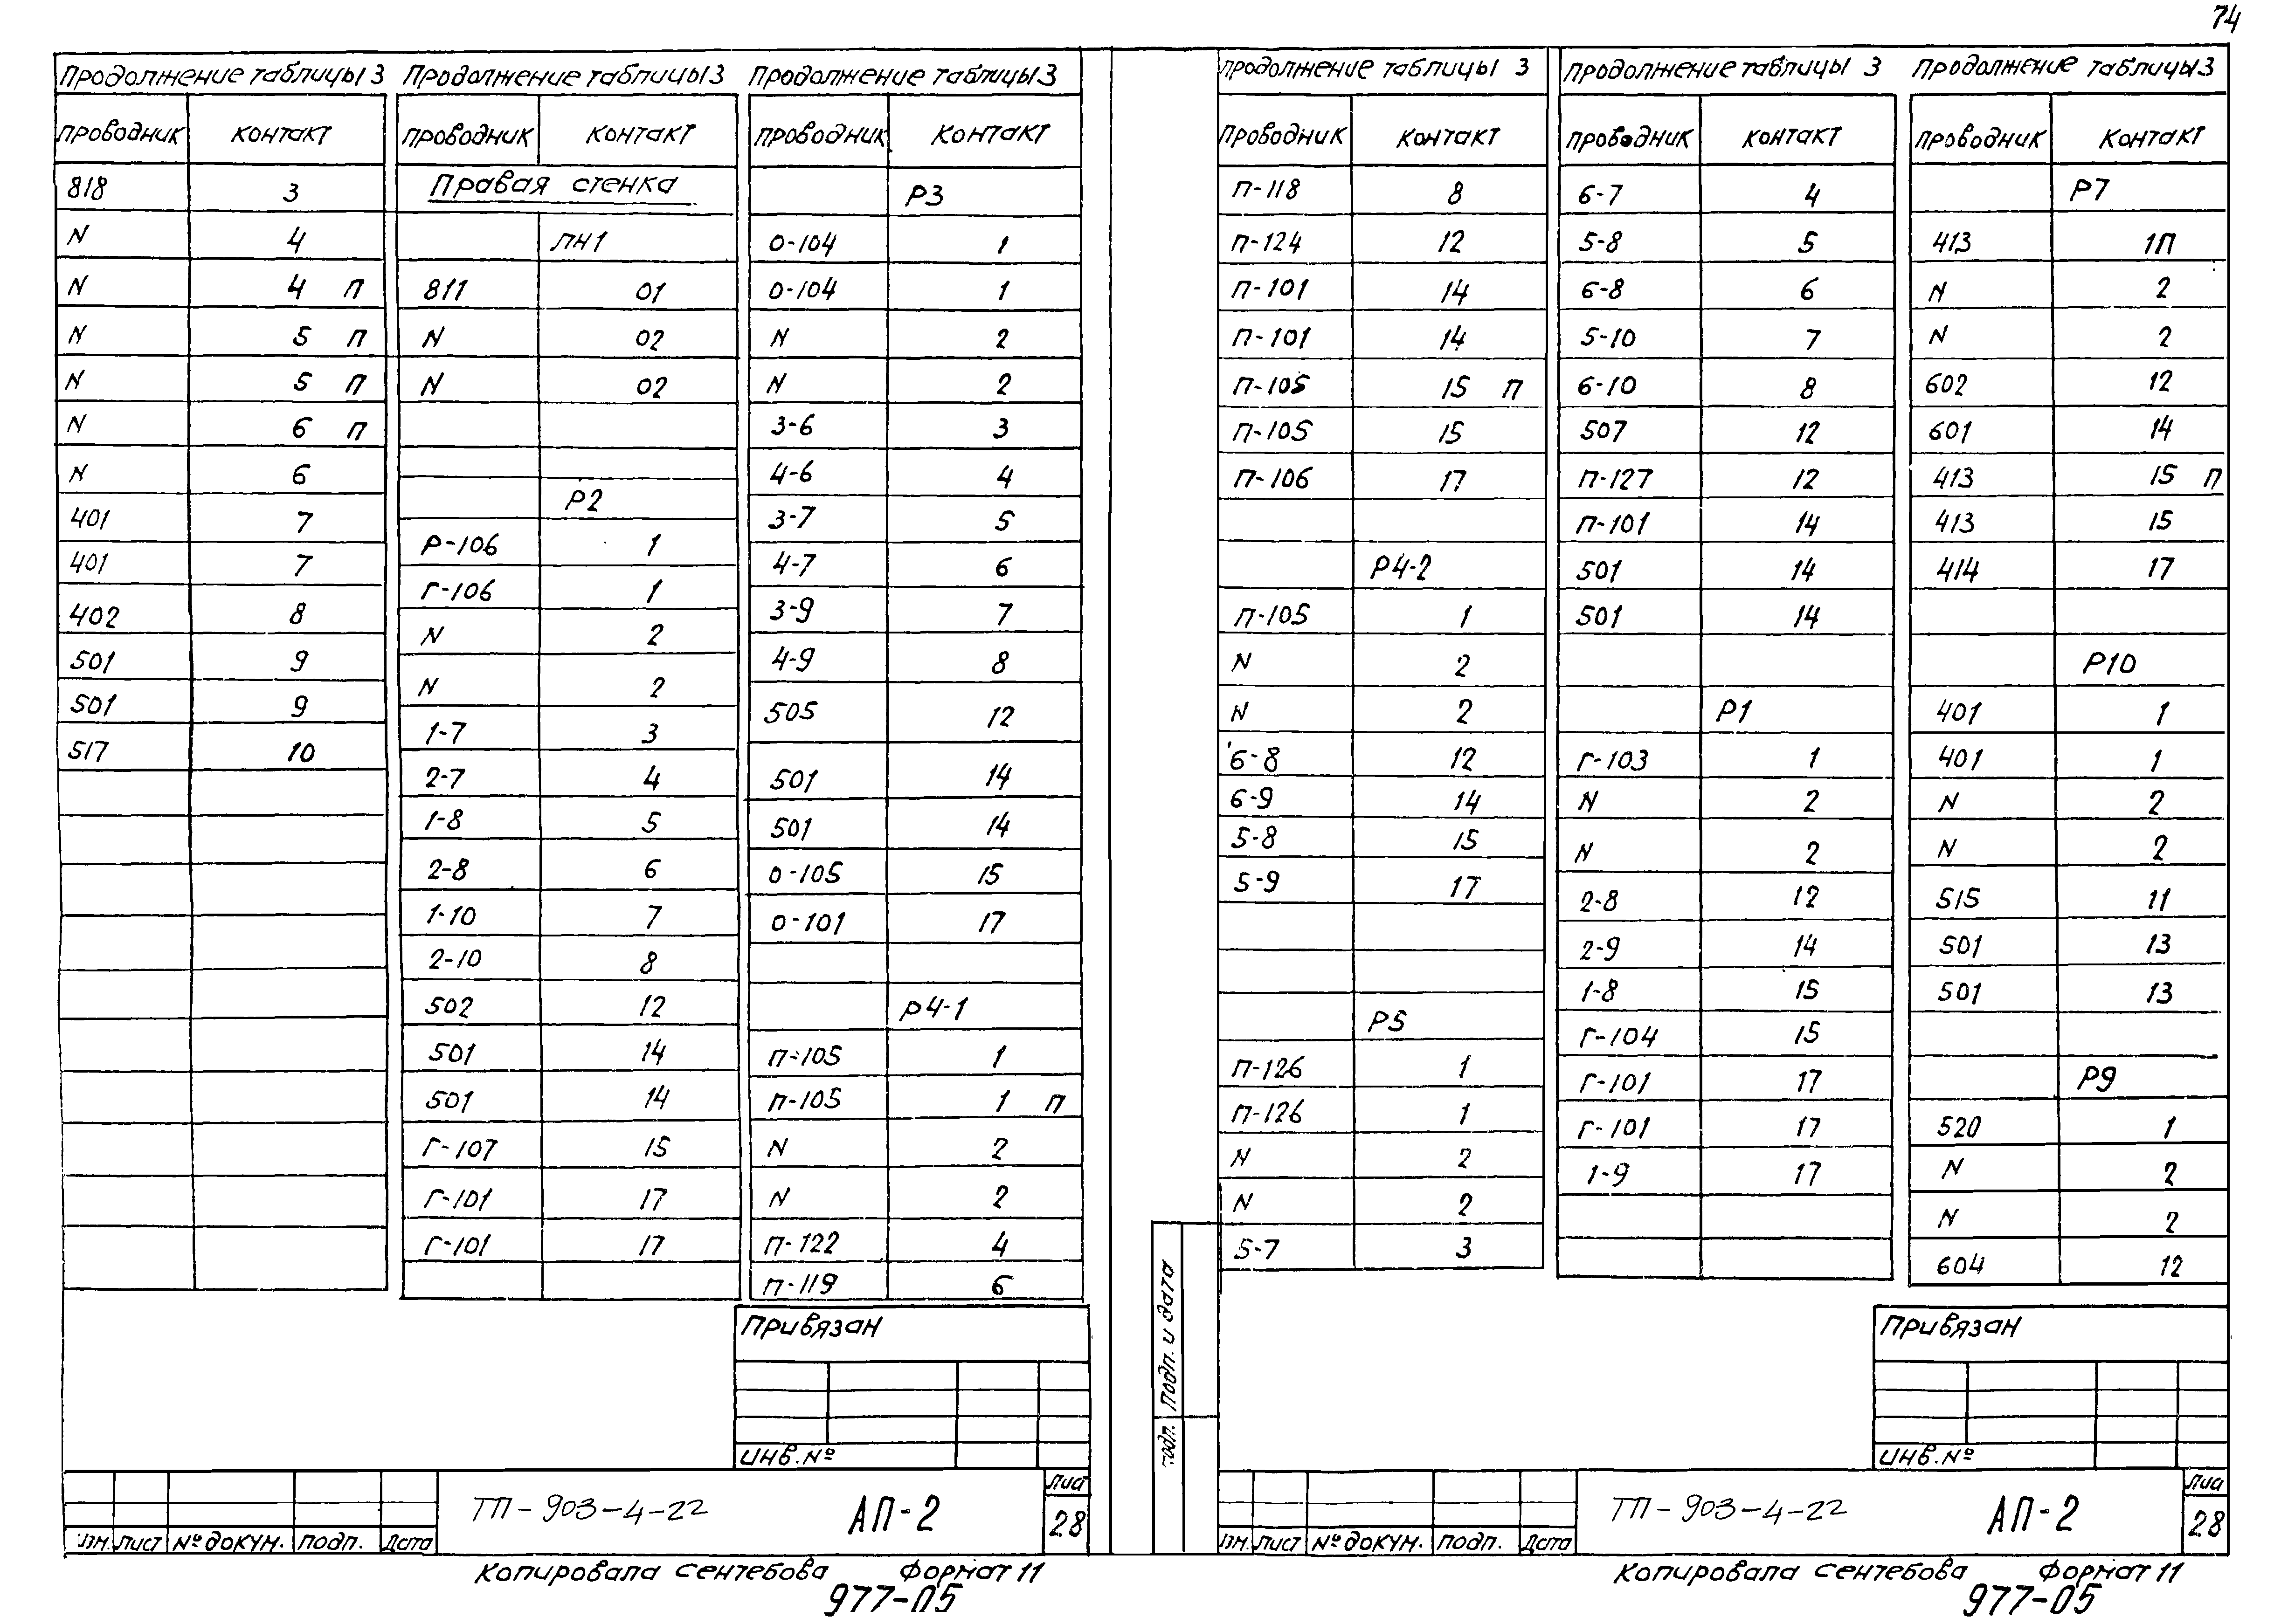 74
Продолжение таблицы 3
проводник контакт
818 3
N 4
N 4 П
N 5 П
N 5 П
N 6 П
N 6
401 7
401 7
402 8
501 9
501 9
517 10
Продолжение таблицы 3
проводник контакт
Правая стенка
ЛН1
811 01
N 02
N 02
Р2
Р-106 1
Г-106 1
N 2
N 2
1-7 3
2-7 4
1-8 5
2-8 6
1-10 7
2-10 8
502 12
501 14
501 14
Г-107 15
Г-101 17
Г-101 17
Продолжение таблицы 3
проводник контакт
Р3
0-104 1
0-104 1
N 2
N 2
3-6 3
4-6 4
3-7 5
4-7 6
3-9 7
4-9 8
505 12
501 14
501 14
0-105 15
0-101 17
Р4-1
П-105 1
П-105 1 П
N 2
N 2
П-122 4
П-119 6
Привязан
Инв. №
Изм. Лист № докум. Подп. Дата
ТП-903-4-22 АП-2
Лист
28
Копировала Сентебова Формат 11
977-05
Продолжение таблицы 3
проводник контакт
П-118 8
П-124 12
П-101 14
П-101 14
П-105 15 П
П-105 15
П-106 17
Р4-2
П-105 1
N 2
N 2
6-8 12
6-9 14
5-8 15
5-9 17
Р5
П-126 1
П-126 1
N 2
N 2
5-7 3
Продолжение таблицы 3
проводник контакт
6-7 4
5-8 5
6-8 6
5-10 7
6-10 8
507 12
П-127 12
П-101 14
501 14
501 14
Р1
Г-103 1
N 2
N 2
2-8 12
2-9 14
1-8 15
Г-104 15
Г-101 17
Г-101 17
1-9 17
Продолжение таблицы 3
проводник контакт
Р7
413 1П
N 2
N 2
602 12
601 14
413 15 П
413 15
414 17
Р10
401 1
401 1
N 2
N 2
515 11
501 13
501 13
Р9
520 1
N 2
N 2
604 12
Подп. и дата
подп.
Привязан
Инв. №
Изм. Лист № докум. Подп. Дата
ТП-903-4-22 АП-2
Лист
28
Копировала Сентебова Формат 11
977-05